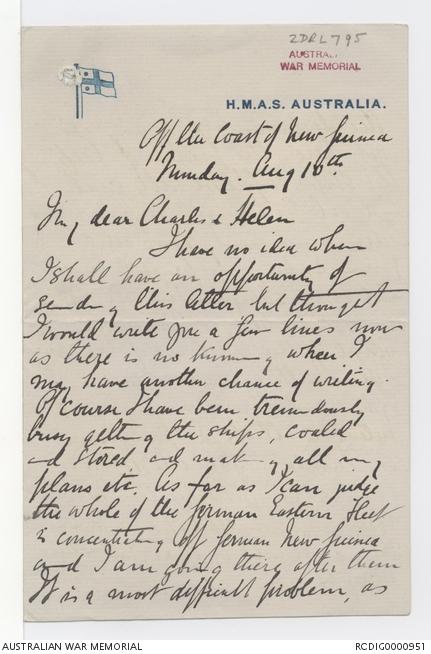 2DRL795
AUSTRAL
WAR MEMORIAL
H.M.A.S. AUSTRALIA.
Off the Coast of New Guinea
Monday. Aug 10th
My dear Charles & Helen
I have no idea when
I shall have an opportunity of
sending this letter but thought
I would write you a few lines now
as there is no knowing when I
may have another chance of writing.
Of course I have been tremendously
busy getting the ships, coaled
and stored and making all my
plans etc. As far as I can judge
the whole of the German Eastern Fleet
is concentrating off German New Guinea
and I am going there after them
It is a most difficult problem, as
AUSTRALIAN WAR MEMORIAL
RCDIG0000951